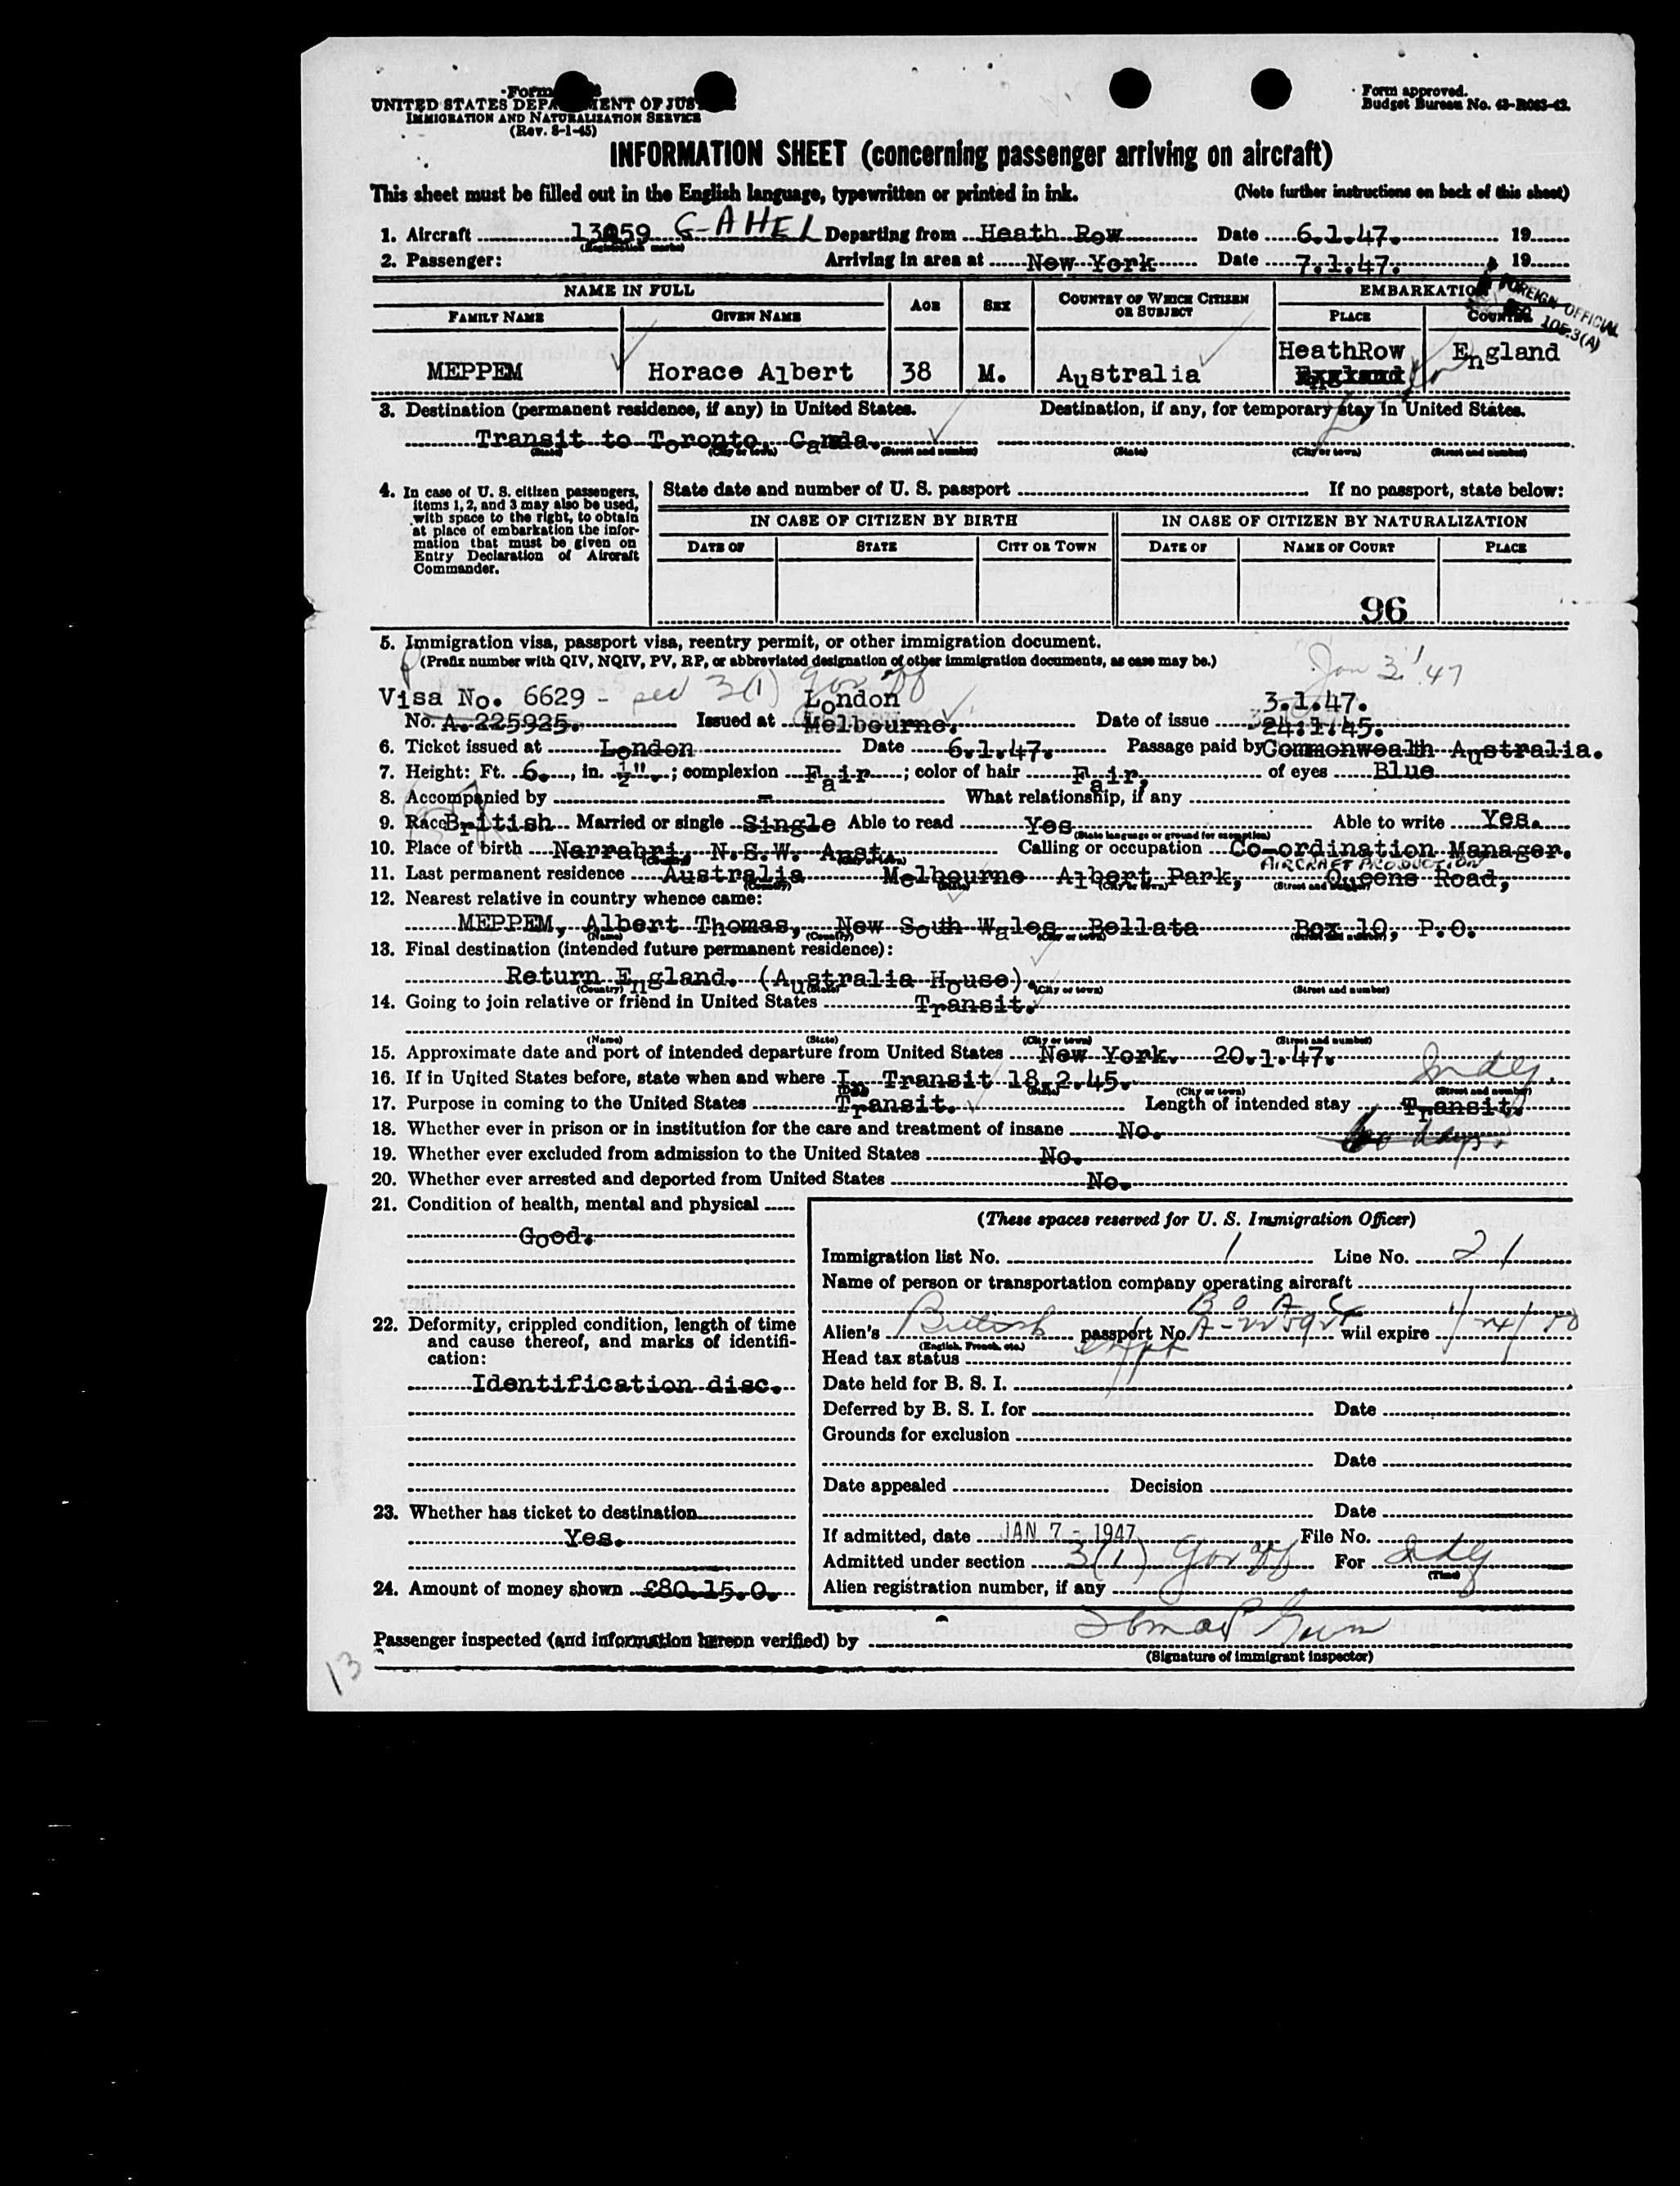 Form
UNITED STATES DEPARTMENT OF JUS
IMMIGRATION AND NATURALIZATION SERVICE
(Rev. 8-1-45)
Form approved.
Budget Bureau No. 43-R083-42.
INFORMATION SHEET (concerning passenger arriving on aircraft)
This sheet must be filled out in the English language, typewritten or printed in ink. (Note further instructions on back of this sheet)
1. Aircraft 13059 G-AHEL Departing from Heath Row Date 6.1.47. 19
(Registration marks)
2. Passenger: Arriving in area at New York Date 7.1.47. 19
FOREIGN OFFICIAL
105.3(A)
NAME IN FULL AGE SEX COUNTRY OF WHICH CITIZEN OR SUBJECT EMBARKATION
FAMILY NAME GIVEN NAME PLACE COUNTRY
MEPPEM Horace Albert 38 M. Australia HeathRow England
3. Destination (permanent residence, if any) in United States. Destination, if any, for temporary stay in United States.
Transit to Toronto, Canda.
(State) (City or town) (Street and number) (State) (City or town) (Street and number)
4. In case of U. S. citizen passengers, items 1, 2, and 3 may also be used, with space to the right, to obtain at place of embarkation the information that must be given on Entry Declaration of Aircraft Commander.
State date and number of U. S. passport If no passport, state below:
IN CASE OF CITIZEN BY BIRTH IN CASE OF CITIZEN BY NATURALIZATION
DATE OF STATE CITY OR TOWN DATE OF NAME OF COURT PLACE
96
5. Immigration visa, passport visa, reentry permit, or other immigration document.
(Prefix number with QIV, NQIV, PV, RP, or abbreviated designation of other immigration documents, as case may be.)
Jan 3 '47
Visa No. 6629 - 3(1) Gov off London 3.1.47.
No. A. 225925. Issued at Melbourne. Date of issue 24.1.45.
6. Ticket issued at London Date 6.1.47. Passage paid by Commonwealth Australia.
7. Height: Ft. 6., in. ½"; complexion Fair; color of hair Fair, of eyes Blue
8. Accompanied by - What relationship, if any
9. Race British Married or single Single Able to read Yes Able to write Yes.
(State language or ground for exemption)
10. Place of birth Narrabri, N.S.W. Aust. Calling or occupation Co-ordination Manager.
AIRCRAFT PRODUCTION
11. Last permanent residence Australia Melbourne Albert Park, Queens Road,
(Country) (State) (City or town) (Street and number)
12. Nearest relative in country whence came:
MEPPEM, Albert Thomas, New South Wales Bellata Box 10, P.O.
(Name) (Country) (City or town) (Street and number)
13. Final destination (intended future permanent residence):
Return England. (Australia House).
(Country) (State) (City or town) (Street and number)
14. Going to join relative or friend in United States Transit.
(Name) (State) (City or town) (Street and number)
15. Approximate date and port of intended departure from United States New York. 20.1.47.
16. If in United States before, state when and where In Transit 18.2.45.
(City or town) (Street and number)
17. Purpose in coming to the United States Transit. Length of intended stay Transit.
60 days.
18. Whether ever in prison or in institution for the care and treatment of insane No.
19. Whether ever excluded from admission to the United States No.
20. Whether ever arrested and deported from United States No.
21. Condition of health, mental and physical
Good.
22. Deformity, crippled condition, length of time and cause thereof, and marks of identification:
Identification disc.
23. Whether has ticket to destination
Yes.
24. Amount of money shown £80.15.0.
(These spaces reserved for U. S. Immigration Officer)
Immigration list No. 1 Line No. 21
Name of person or transportation company operating aircraft
B O A C
Alien's British passport No. A-225925 will expire 1/24/50
(English, French, etc.)
Head tax status
Date held for B. S. I.
Deferred by B. S. I. for Date
Grounds for exclusion
Date
Date appealed Decision
Date
If admitted, date JAN 7 - 1947 File No.
Admitted under section 3(1) Gov off For
(Time)
Alien registration number, if any
Passenger inspected (and information hereon verified) by
(Signature of immigrant inspector)
13